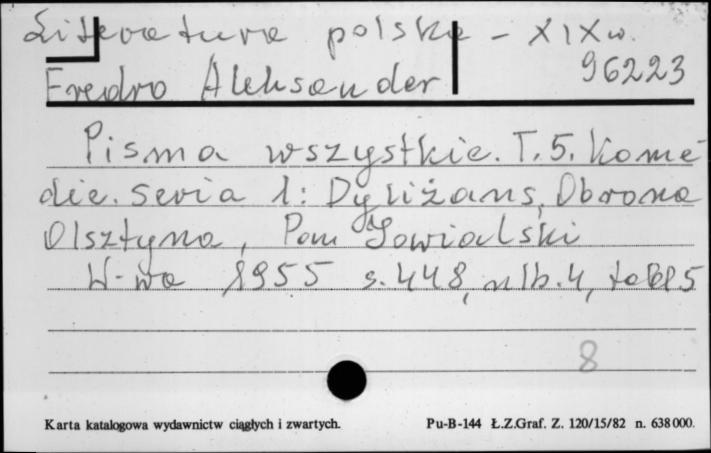 Literatura polska - XIX w.
96223
Fredro Aleksander
Pisma wszystkie. T. 5. Kome-
die. Seria 1: Dyliżans, Obrona
Olsztyna, Pan Jowialski
W-wa 1955 s. 448, nlb. 4, tabl 5
8
Karta katalogowa wydawnictw ciągłych i zwartych. Pu-B-144 Ł.Z.Graf. Z. 120/15/82 n. 638000.